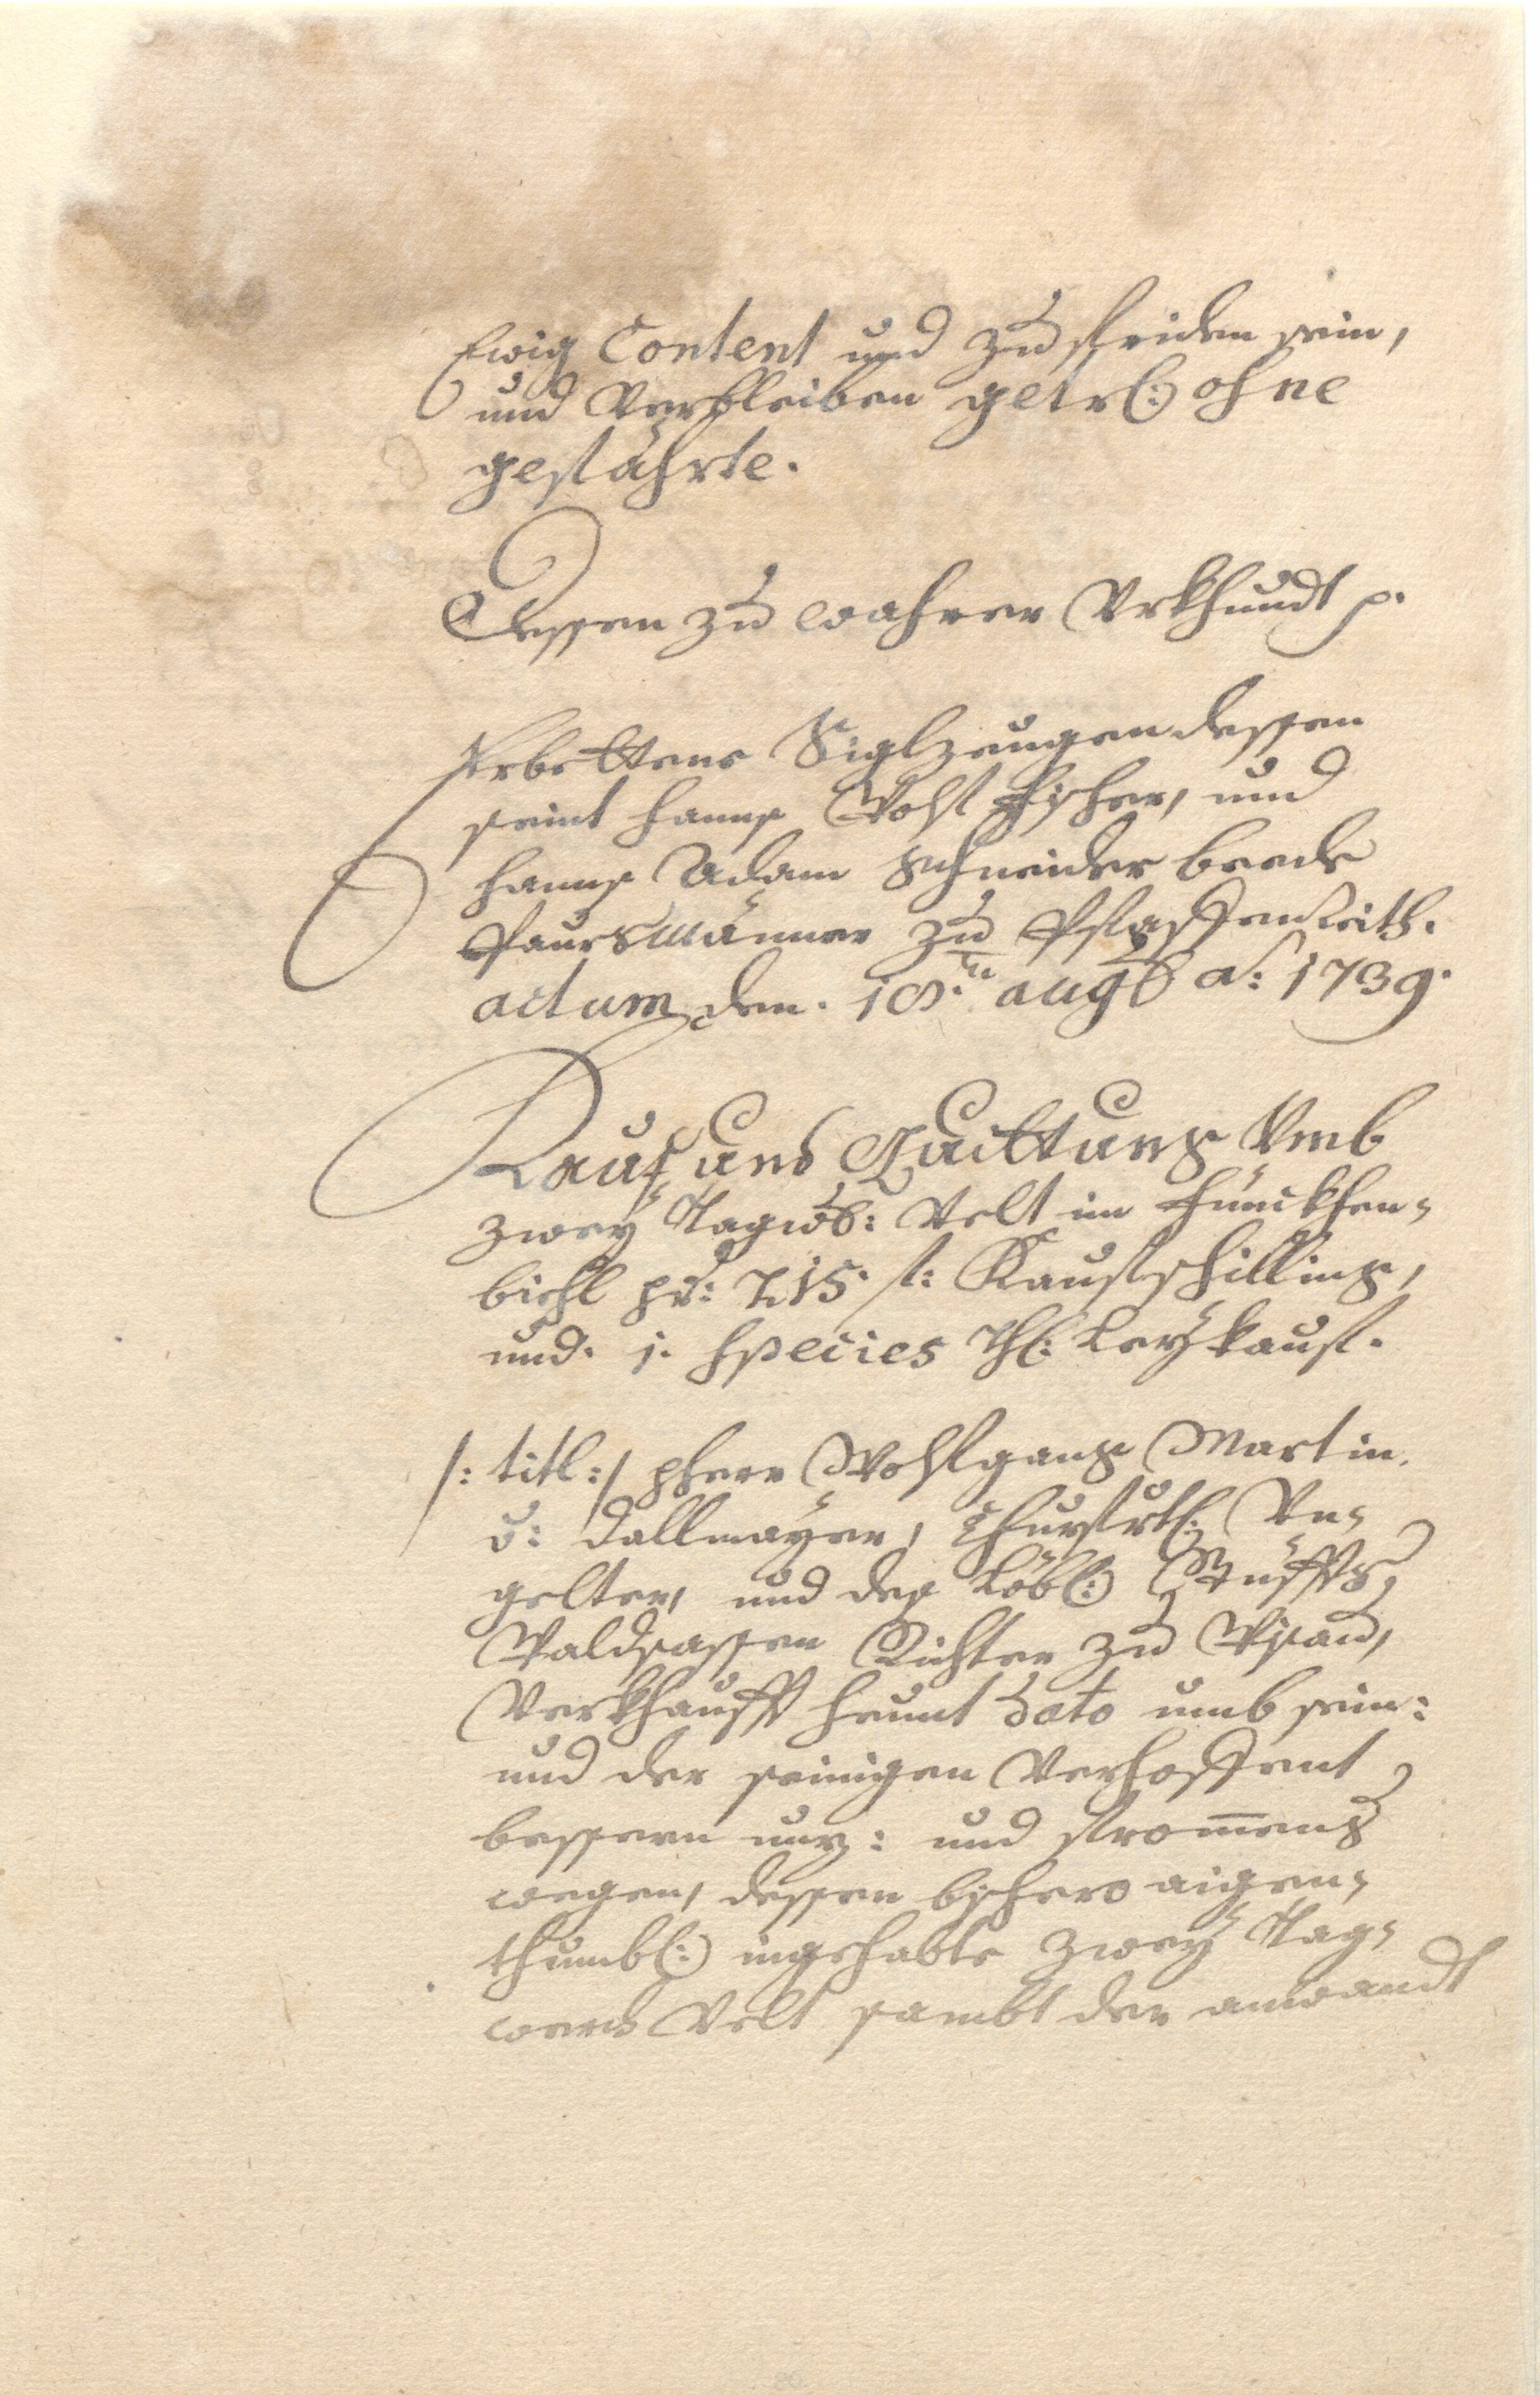 Ewig Content und zufriden sein,
und Verbleiben getrl: ohne
gefährte.
Dessen zu wahrer Urkhundt p.
Erbettene Siglzeugen dessen
seint Hanns Wolf Fischer, und
Hanns Adam Schneider beede
Paursmänner zu Pfaffenreith.
actum den. 18.ten augs a: 1739.
Kauf und Quittung Umb
zwey Tagwß: Velt im Hünckhen-
bichl pr: 115. f: Kaufschilling,
und. 1. Species Thl: Leykauf.
/: titl: / Herr Wolfgang Martin
v: Dallmayer, Churfrtl: Un-
gelter, und des Löbl: Stüffts
Waldsassen Richter zu Wisau,
Verkhaufft heunt dato umb sein:
und der seinigen Verhoffent
bessern nuz: und frommens
wegen, dessen bishero aigen-
thumbl: ingehabte zwey Tag-
werch Velt sambt der anwandt